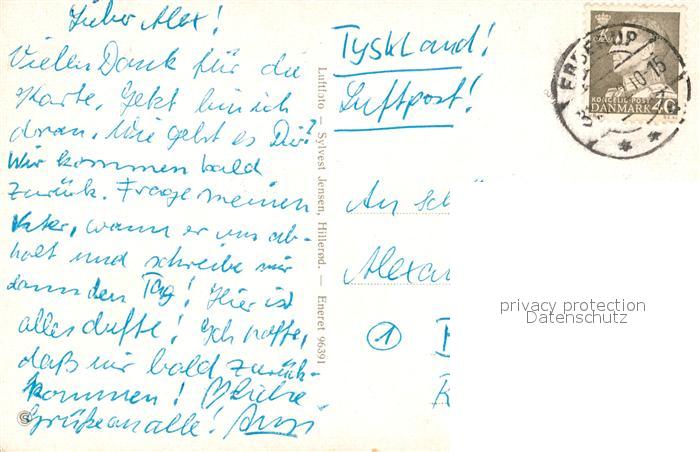 Lieber Alex!
Vielen Dank für die
Karte. Jetzt bin ich
dran. Wie geht es Dir?
Wir kommen bald
zurück. Frage meinen
Vater, wann er uns ab-
holt und schreibe mir
dann den Tag! Hier ist
alles dufte! Ich hoffe,
daß wir bald zurück-
kommen! Liebe
Grüße an alle!
Luftfoto — Sylvest Jensen, Hillerød. — Eneret 96391
Tyskland!
Luftpost!
KONGELIG POST
DANMARK 40
An
Alexan
1
privacy protection
Datenschutz